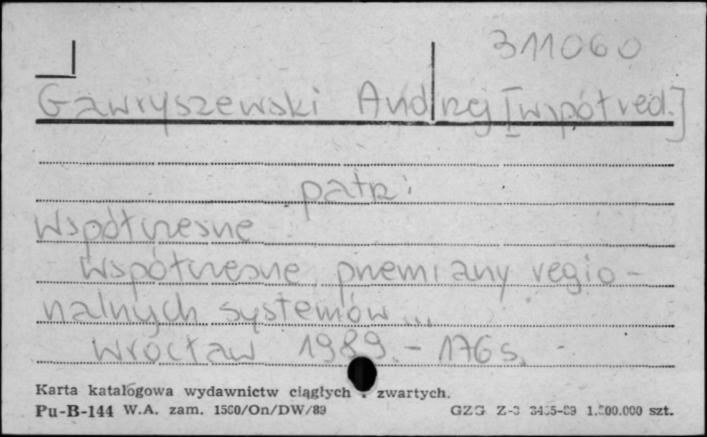 311060
Gawryszewski Andrzej [współred.]
patrz:
Współczesne
Współczesne przemiany regio-
nalnych systemów...
Wrocław 1989. - 176 s. -
Karta katalogowa wydawnictw ciągłych i zwartych.
Pu-B-144 W.A. zam. 1500/On/DW/89 GZG Z-3 1.500.000 szt.